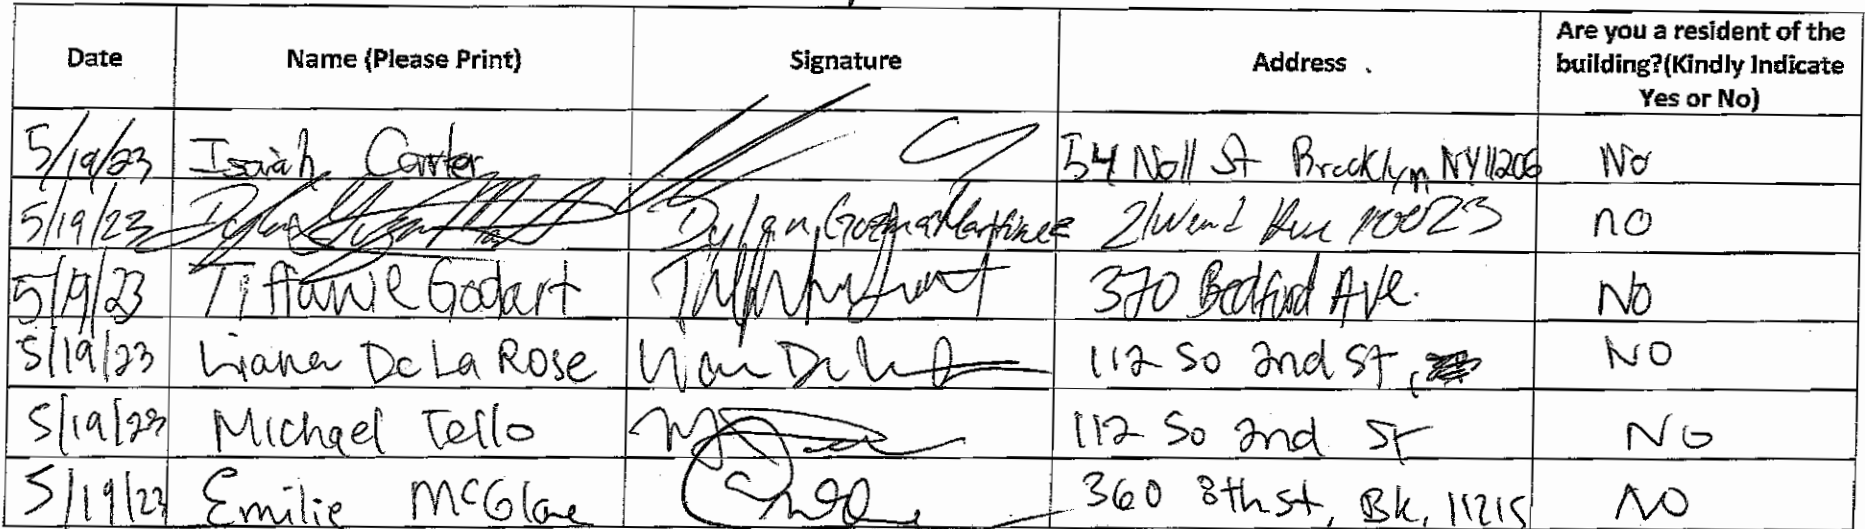 Date Name (Please Print) Signature Address Are you a resident of the building?(Kindly Indicate Yes or No)
5/19/23 Isaiah Carter 54 Noll St Brooklyn NY 11206 No
5/19/23 Dylan Martinez 21 10023 no
5/19/23 Tiffanie Godart 370 Bedford Ave. No
5/19/23 Liana De La Rose 112 So 2nd St, NO
5/19/23 Michael Tello 112 So 2nd St NO
5/19/23 Emilie McGlone 360 8th St, Bk, 11215 NO